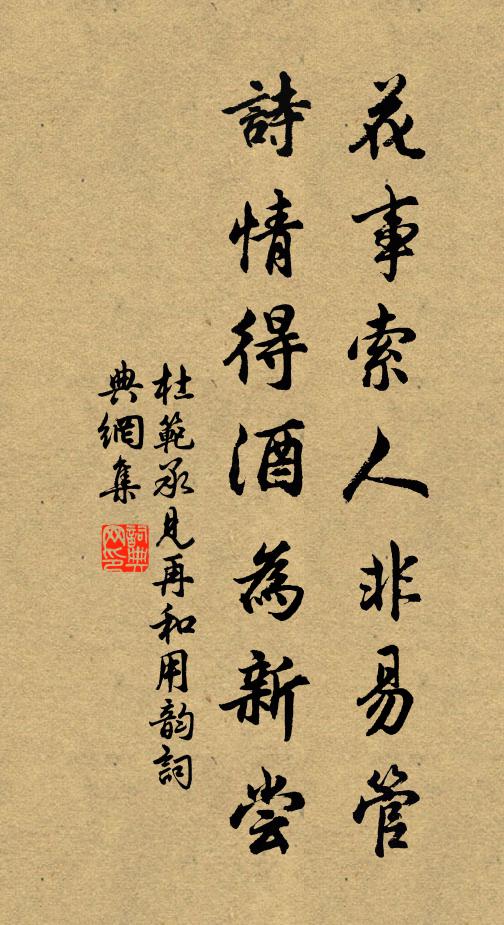 花事索人非易管
詩情得酒為新尝
杜範承見再和用韵詞
典網集
詞典网印